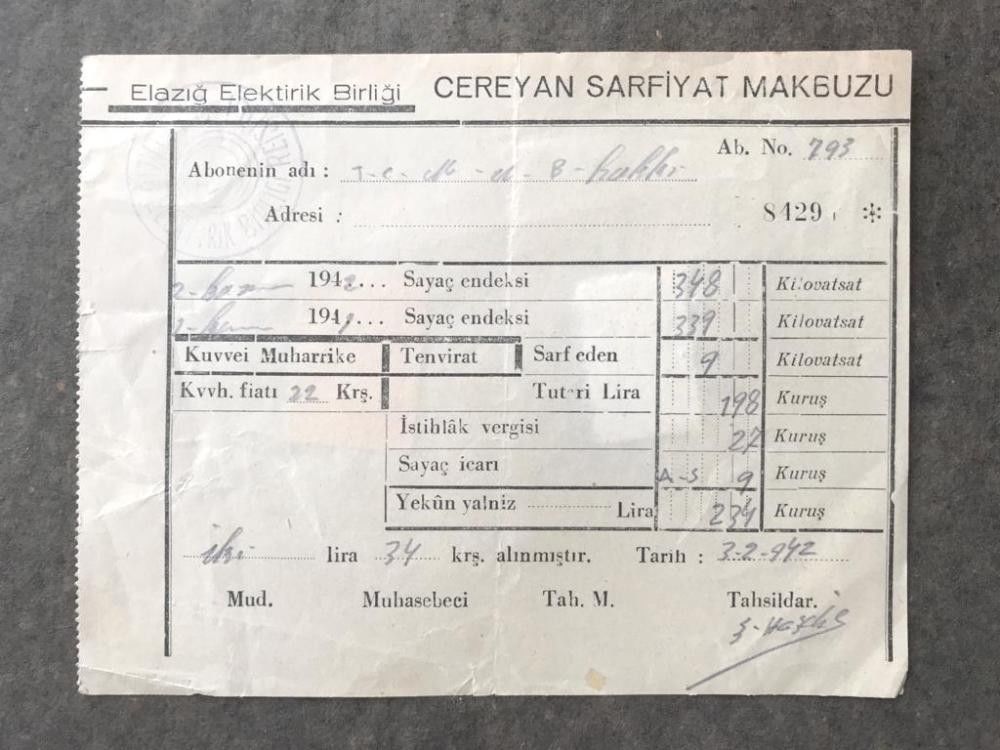 Elazığ Elektirik Birliği CEREYAN SARFİYAT MAKBUZU
Ab. No. 793
Abonenin adı :
Adresi : 8429
1942... Sayaç endeksi 348 Kilovatsat
1941... Sayaç endeksi 339 Kilovatsat
Kuvvei Muharrike Tenvirat Sarf eden 9 Kilovatsat
Kvvh. fiatı 22 Krş. Tutari Lira 198 Kuruş
İstihlâk vergisi 27 Kuruş
Sayaç icarı A-S 9 Kuruş
Yekûn yalnız Lira 234 Kuruş
iki lira 34 krş. alınmıştır. Tarih : 3-2-942
Mud. Muhasebeci Tah. M. Tahsildar.